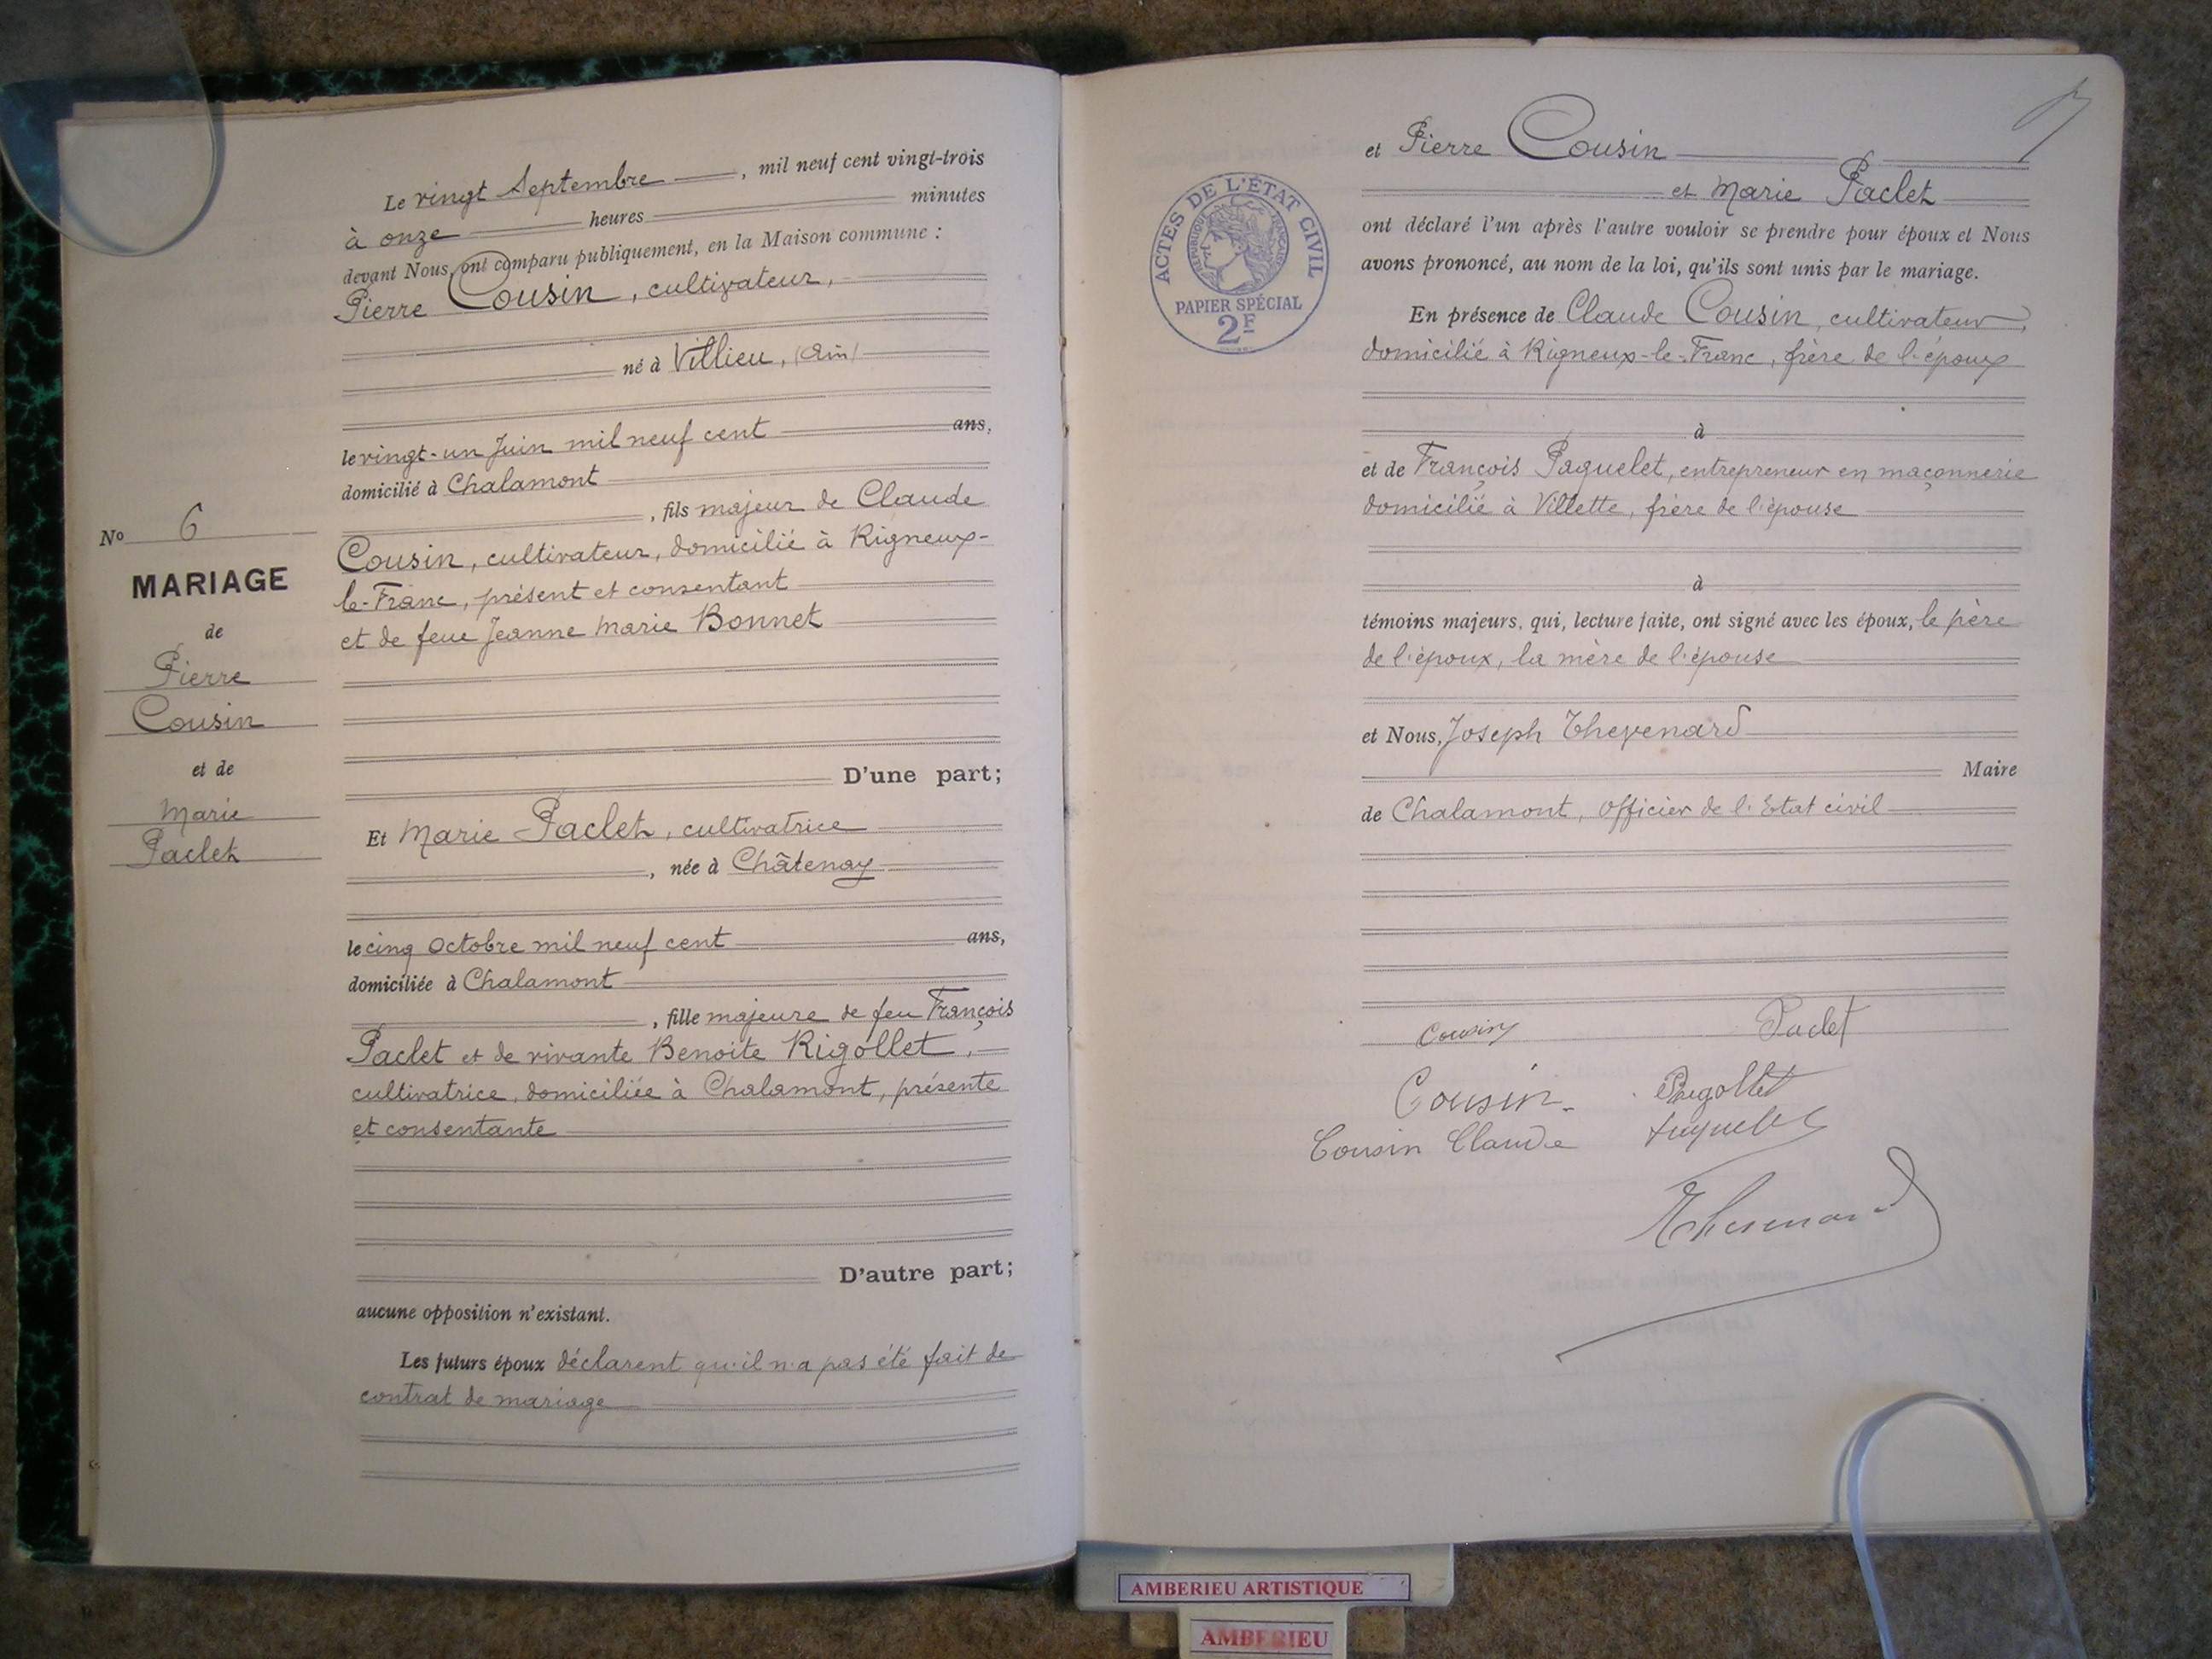 Le vingt Septembre, mil neuf cent vingt-trois
à onze heures minutes
devant Nous, ont comparu publiquement, en la Maison commune :
Pierre Cousin, cultivateur,
né à Villieu, (Ain)
le vingt-un Juin mil neuf cent ans,
domicilié à Chalamont
, fils majeur de Claude
Cousin, cultivateur, domicilié à Rigneux-
le-Franc, présent et consentant
et de feue Jeanne Marie Bonnet
D'une part;
No 6
MARIAGE
de
Pierre
Cousin
et de
Marie
Paclet
Et Marie Paclet, cultivatrice
, née à Châtenay
le cinq Octobre mil neuf cent ans,
domiciliée à Chalamont
, fille majeure de feu François
Paclet et de vivante Benoite Rigollet,
cultivatrice, domiciliée à Chalamont, présente
et consentante
D'autre part;
aucune opposition n'existant.
Les futurs époux déclarent qu'il n'a pas été fait de
contrat de mariage
et Pierre Cousin
et Marie Paclet
ont déclaré l'un après l'autre vouloir se prendre pour époux et Nous
avons prononcé, au nom de la loi, qu'ils sont unis par le mariage.
En présence de Claude Cousin, cultivateur,
domicilié à Rigneux-le-Franc, frère de l'époux
à
et de François Paquelet, entrepreneur en maçonnerie
domicilié à Villette, frère de l'épouse
à
témoins majeurs, qui, lecture faite, ont signé avec les époux, le père
de l'époux, la mère de l'épouse
et Nous, Joseph Thevenard
Maire
de Chalamont, Officier de l'Etat civil
Cousin Paclet
Cousin Rigollet
Cousin Claude
Thevenard
ACTES DE L'ÉTAT CIVIL
RÉPUBLIQUE FRANÇAISE
PAPIER SPÉCIAL
2F
AMBERIEU ARTISTIQUE
AMBERIEU